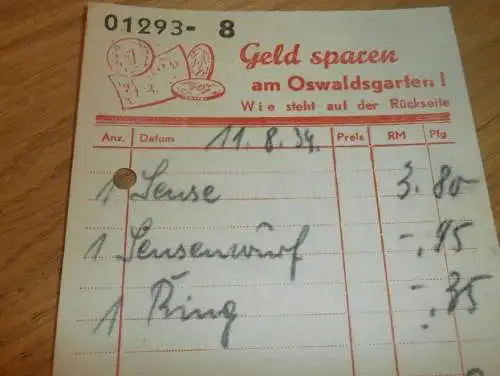 01293- 8
Geld sparen
am Oswaldsgarten!
Wie steht auf der Rückseite
Anz. Datum 11.8.34. Preis RM Pfg
1 Sense 3.80
1 Sensenwurf -.95
1 Ring -.35